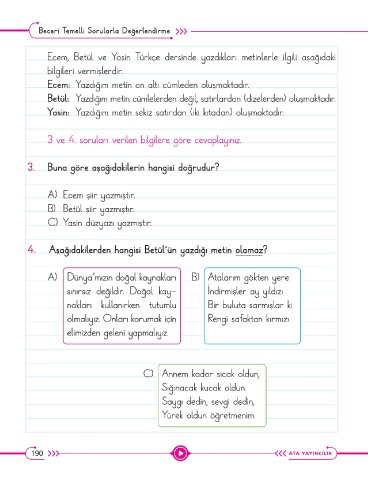 Beceri Temelli Sorularla Değerlendirme
Ecem, Betül ve Yasin Türkçe dersinde yazdıkları metinlerle ilgili aşağıdaki
bilgileri vermişlerdir.
Ecem: Yazdığım metin on altı cümleden oluşmaktadır.
Betül: Yazdığım metin cümlelerden değil, satırlardan (dizelerden) oluşmaktadır.
Yasin: Yazdığım metin sekiz satırdan (iki kıtadan) oluşmaktadır.
3 ve 4. soruları verilen bilgilere göre cevaplayınız.
3. Buna göre aşağıdakilerin hangisi doğrudur?
A) Ecem şiir yazmıştır.
B) Betül şiir yazmıştır.
C) Yasin düzyazı yazmıştır.
4. Aşağıdakilerden hangisi Betül'ün yazdığı metin olamaz?
A) Dünya'mızın doğal kaynakları
sınırsız değildir. Doğal kay-
nakları kullanırken tutumlu
olmalıyız. Onları korumak için
elimizden geleni yapmalıyız.
B) Atalarım gökten yere
İndirmişler ay yıldızı
Bir buluta sarmışlar ki
Rengi şafaktan kırmızı
C) Annem kadar sıcak oldun,
Sığınacak kucak oldun.
Saygı dedin, sevgi dedin,
Yürek oldun öğretmenim.
190
ATA YAYINCILIK